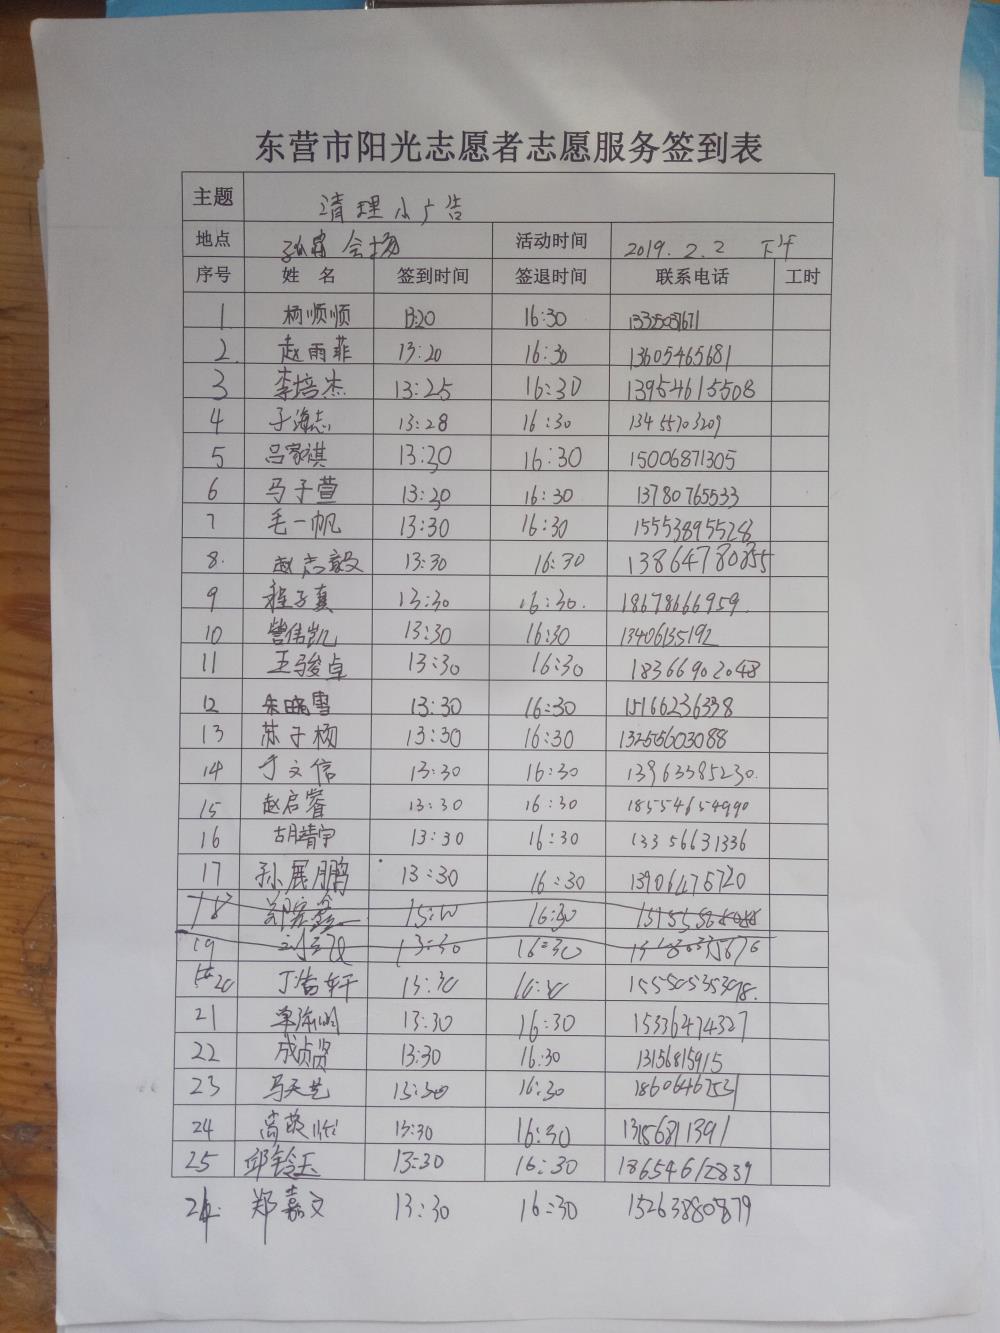 东营市阳光志愿者志愿服务签到表
主题 清理小广告
地点 会场 活动时间 2019.2.2 下午
序号 姓名 签到时间 签退时间 联系电话 工时
1 柯顺顺 13:20 16:30
2. 赵雨菲 13:20 16:30 13605465681
3 李培杰 13:25 16:30 13954615508
4 于海志 13:28 16:30 13455703209
5 吕家祺 13:30 16:30 15006871305
6 马子萱 13:30 16:30 13780765533
7 毛一帆 13:30 16:30 15553895528
8. 赵志毅 13:30 16:30 13864780855
9 程子真 13:30 16:30. 18678666959.
10 伟凯 13:30 16:30 13406135192
11 王骏卓 13:30 16:30 18366902048
12 朱晓雪 13:30 16:30 15166236338
13 苏子杨 13:30 16:30 13255603088
14 于文信 13:30 16:30 13963385230.
15 赵启睿 13:30 16:30 18554654990
16 胡靖宇 13:30 16:30 13356631336
17 孙展鹏 13:30 16:30 13906476720
18 16:30
19 13:30 16:30
20 丁浩轩 13:30 16:30 15550535398.
21 13:30 16:30 15336474327
22 成贞贤 13:30 16:30 13156815915
23 马天艺 13:30 16:30 18606467531
24 13:30 16:30 13156811391
25 邱铃玉 13:30 16:30 18654612839
26. 郑嘉文 13:30 16:30 15263880879